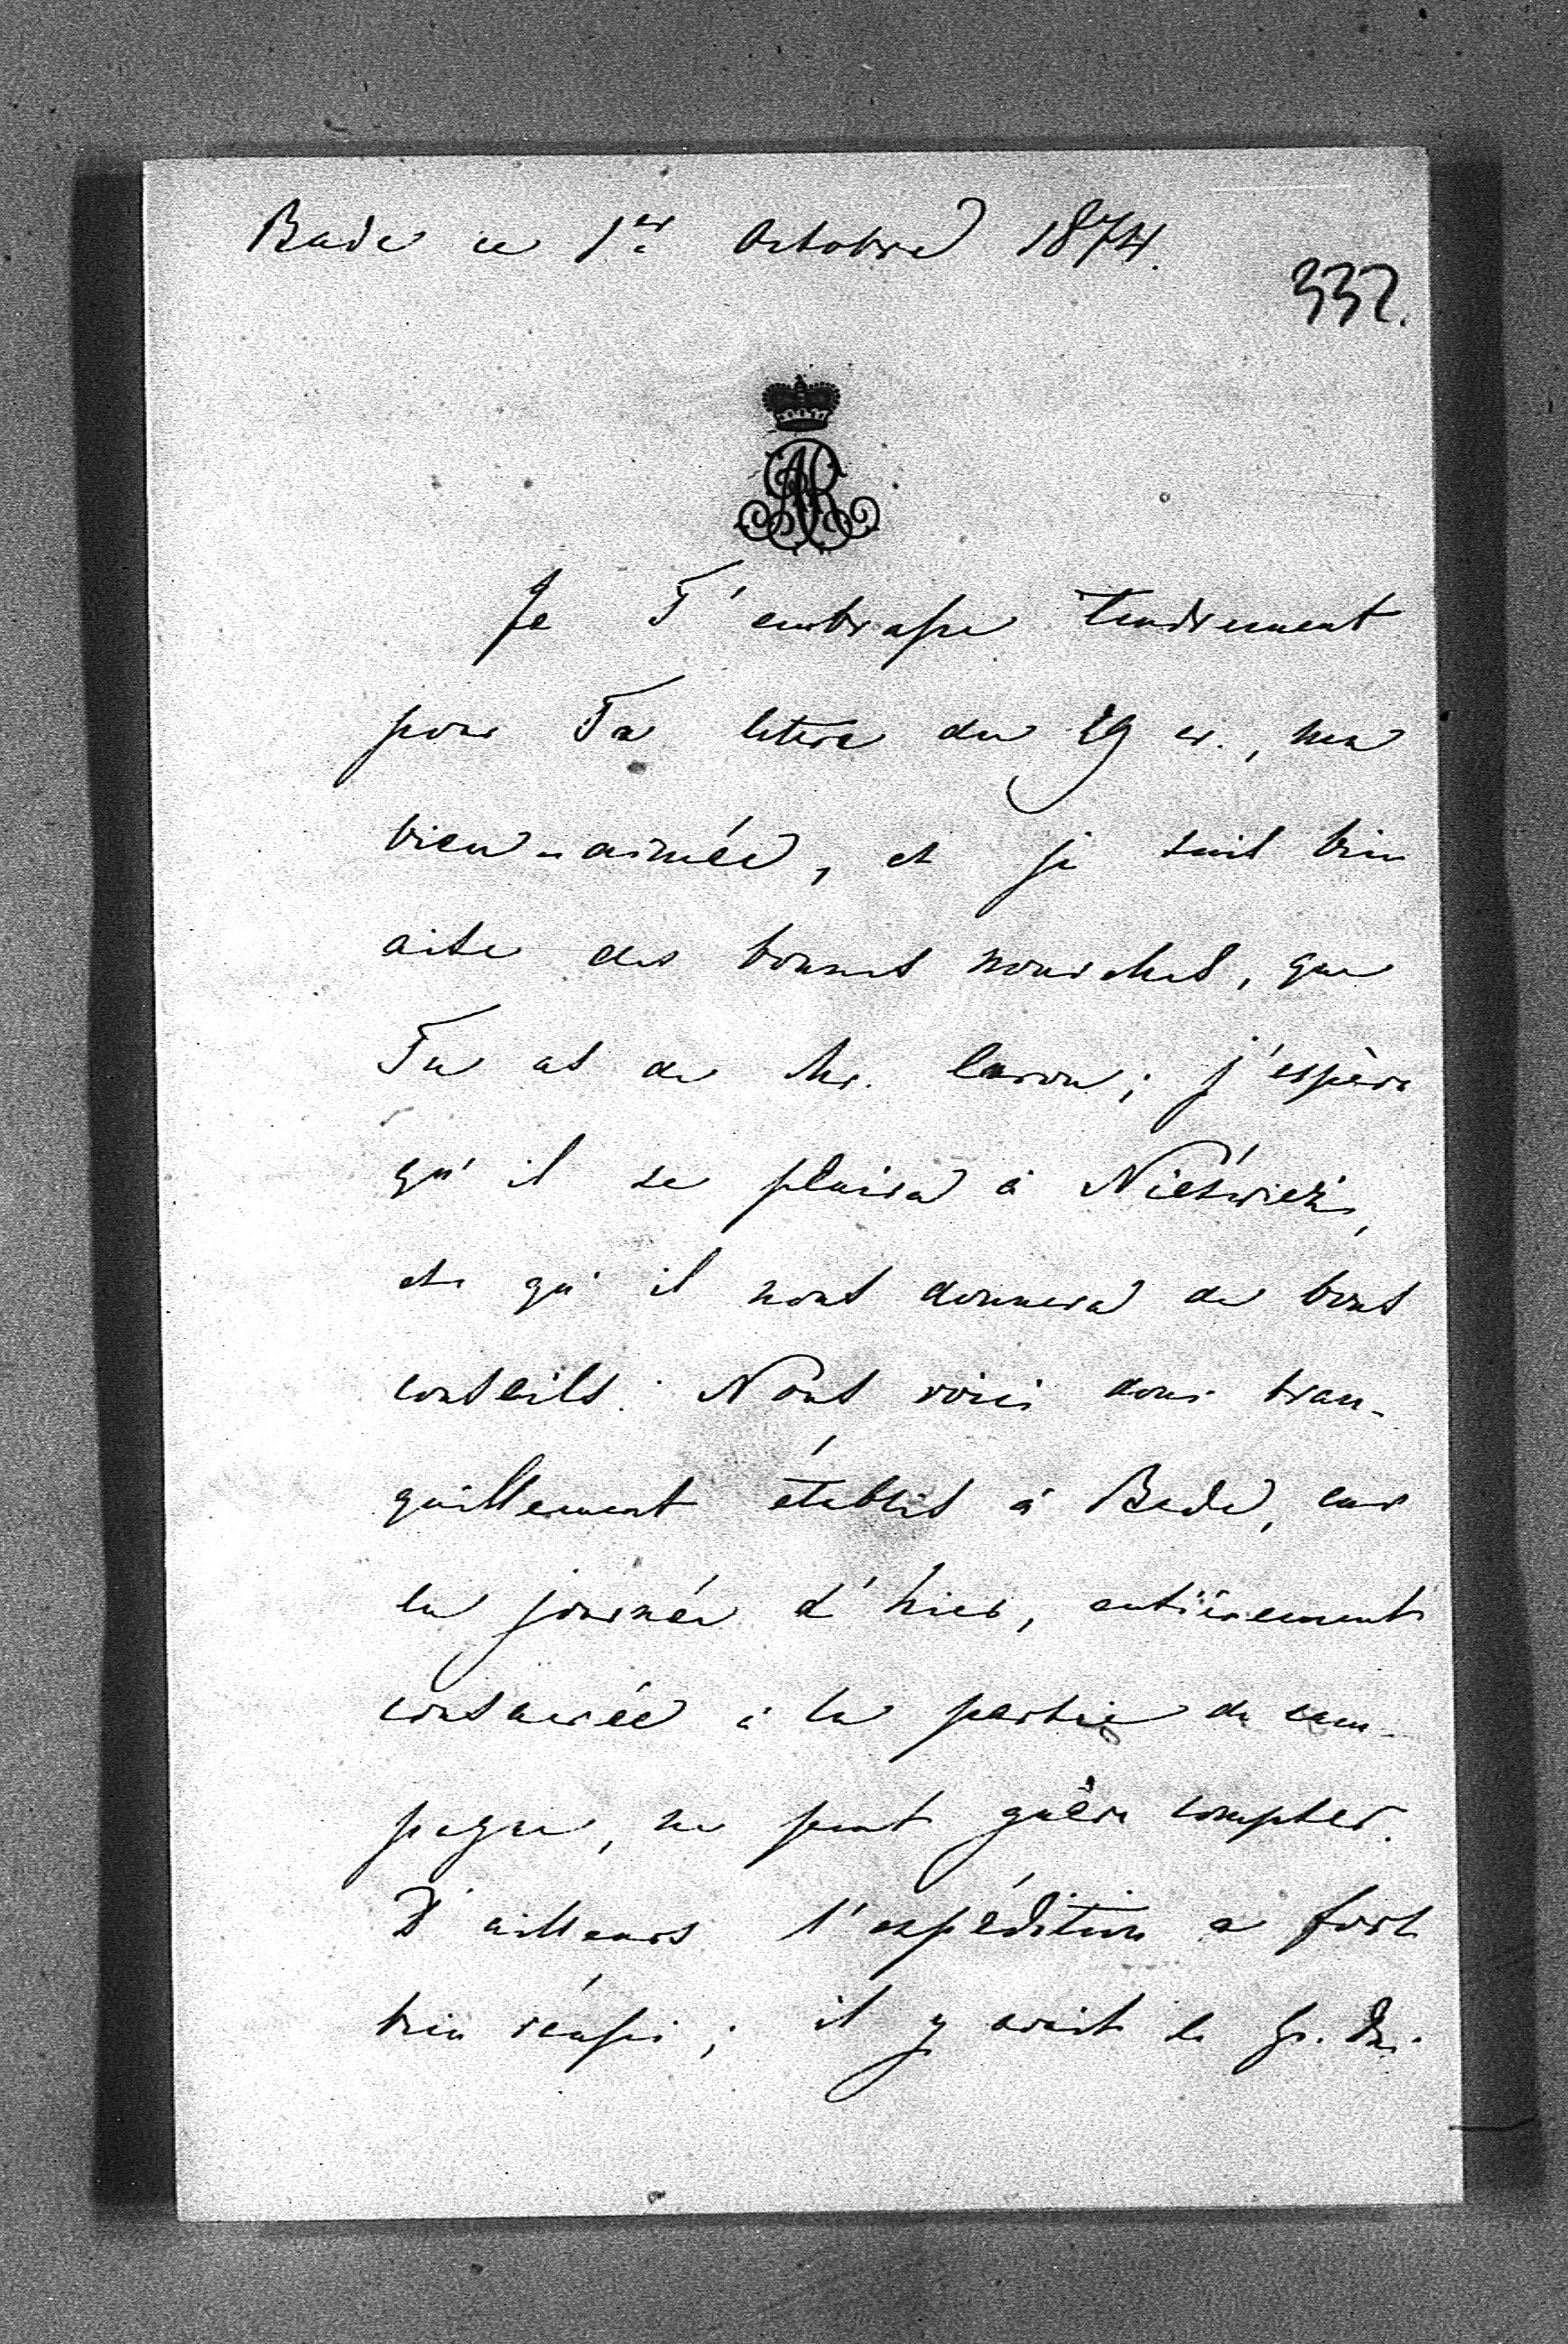 Bade ce 1er Octobre 1874.
332.
AR
Je T'embrasse tendrement
pour Ta lettre du 29 cr., ma
bien-aimée, et je suis bien
aise des bonnes nouvelles, que
Tu as de Mr. Caron; j'espère
qu'il se plaira à Nieśwież,
et qu'il nous donnera de bons
conseils. Nous voici donc tran-
quillement établis à Bade, car
la journée d'hier, entièrement
consacrée à la partie de cam-
pagne, ne peut guère compter.
D'ailleurs l'expédition a fort
bien réussi; il y avait le Gr. Duc